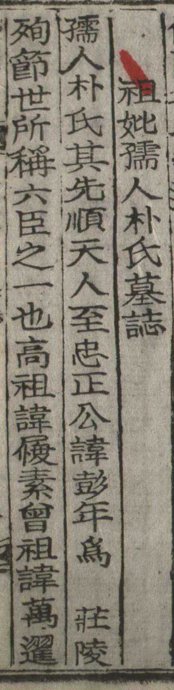 祖妣孺人朴氏墓誌
孺人朴氏其先順天人至忠正公諱彭年爲 莊陵
殉節世所稱六臣之一也高祖諱履素曾祖諱萬選